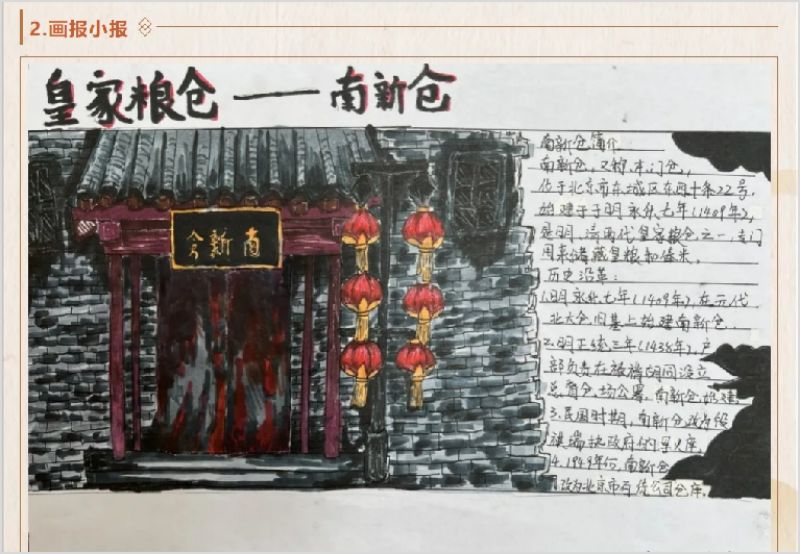 2.画报小报
皇家粮仓——南新仓
南新仓
南新仓简介
南新仓,又称东门仓,
位于北京市东城区东四十条22号,
始建于于明永乐七年(1409年),
是明、清两代皇家粮仓之一,专门
用来储藏皇粮和俸米。
历史沿革:
1.明永乐七年(1409年),在元代
北太仓旧基上始建南新仓。
2.明正统三年(1438年),户
部负责在裱褙胡同设立
总督仓场公署,南新仓始建
3.民国时期,南新仓改为
政府的军火库
4.1949年后,南新仓
改为北京市百货公司仓库。